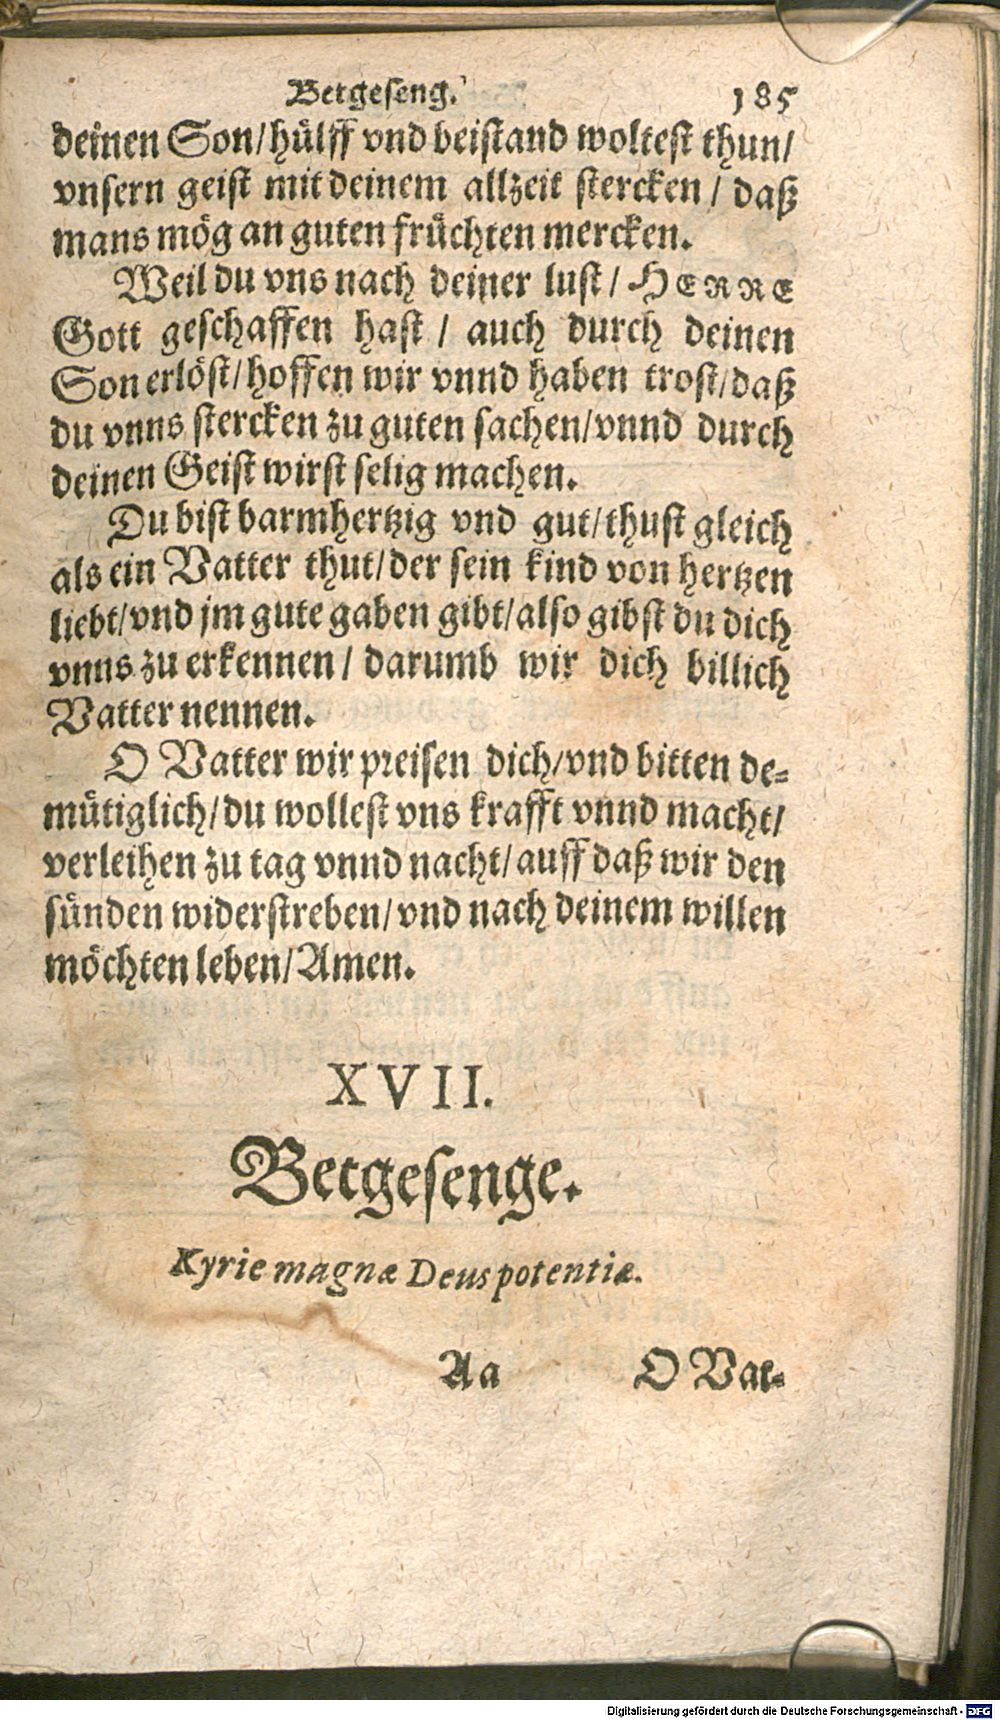 Betgeseng. 185
deinen Son/hülff vnd beistand woltest thun/
vnsern geist mit deinem allzeit stercken / daß
mans mög an guten früchten mercken.
Weil du vns nach deiner lust / HERRE
Gott geschaffen hast / auch durch deinen
Son erlöst/hoffen wir vnnd haben trost/daß
du vnns stercken zu guten sachen/vnnd durch
deinen Geist wirst selig machen.
Du bist barmhertzig vnd gut/thust gleich
als ein Vatter thut/der sein kind von hertzen
liebt/vnd jm gute gaben gibt/also gibst du dich
vnns zu erkennen / darumb wir dich billich
Vatter nennen.
O Vatter wir preisen dich/vnd bitten de-
mütiglich/du wollest vns krafft vnnd macht/
verleihen zu tag vnnd nacht/auff daß wir den
sünden widerstreben/vnd nach deinem willen
möchten leben/Amen.
XVII.
Betgesenge.
Kyrie magnæ Deus potentiæ.
Aa O Vat-
Digitalisierung gefördert durch die Deutsche Forschungsgemeinschaft - DFG